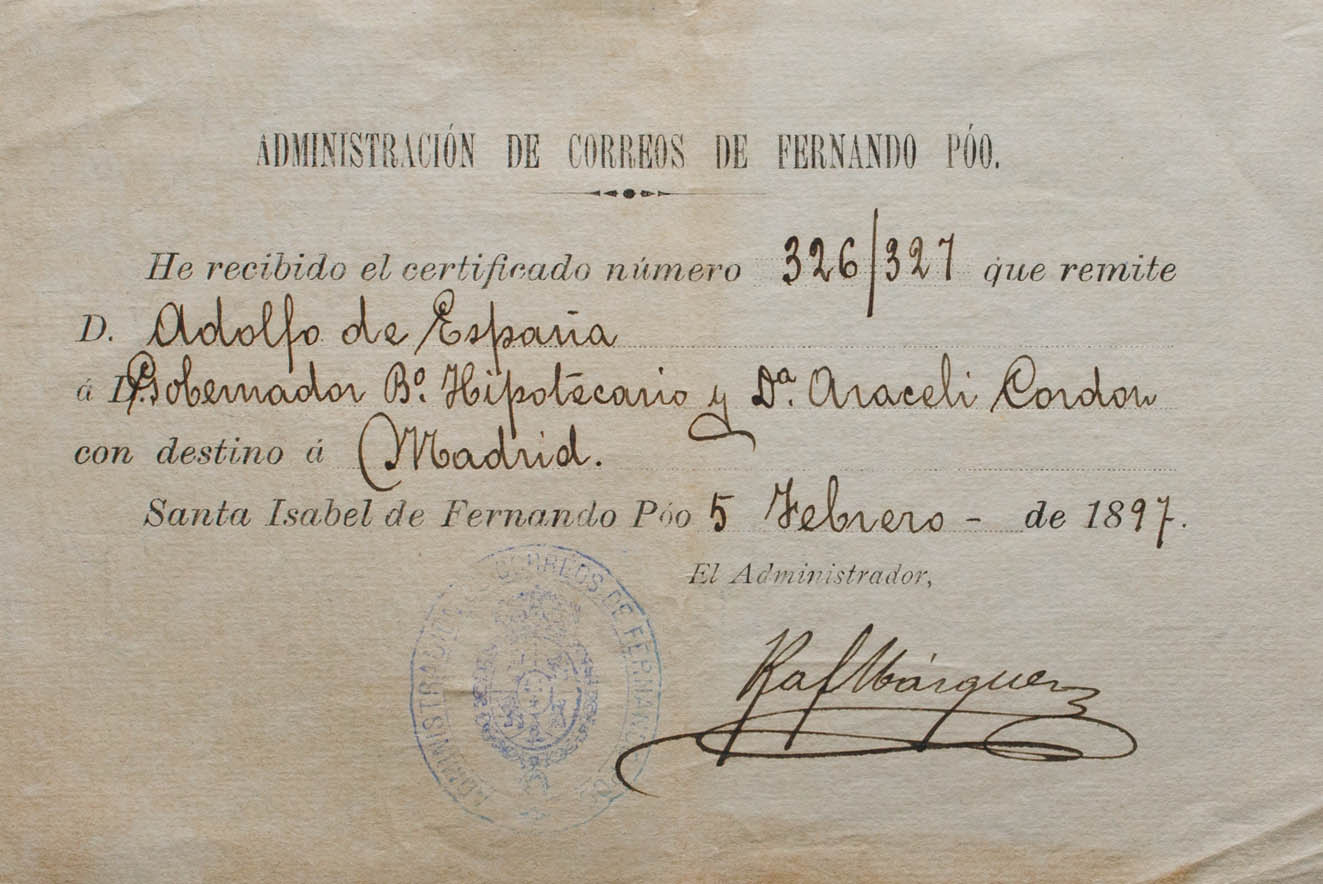 ADMINISTRACIÓN DE CORREOS DE FERNANDO PÓO.
He recibido el certificado número 326/327 que remite
D. Adolfo de España
á D. Gobernador Bº. Hipotecario y Dª. Araceli Cordon
con destino á Madrid.
Santa Isabel de Fernando Póo 5 Febrero - de 1897.
El Administrador,
Raf Márquez
ADMINISTRACION DE CORREOS DE FERNANDO POO